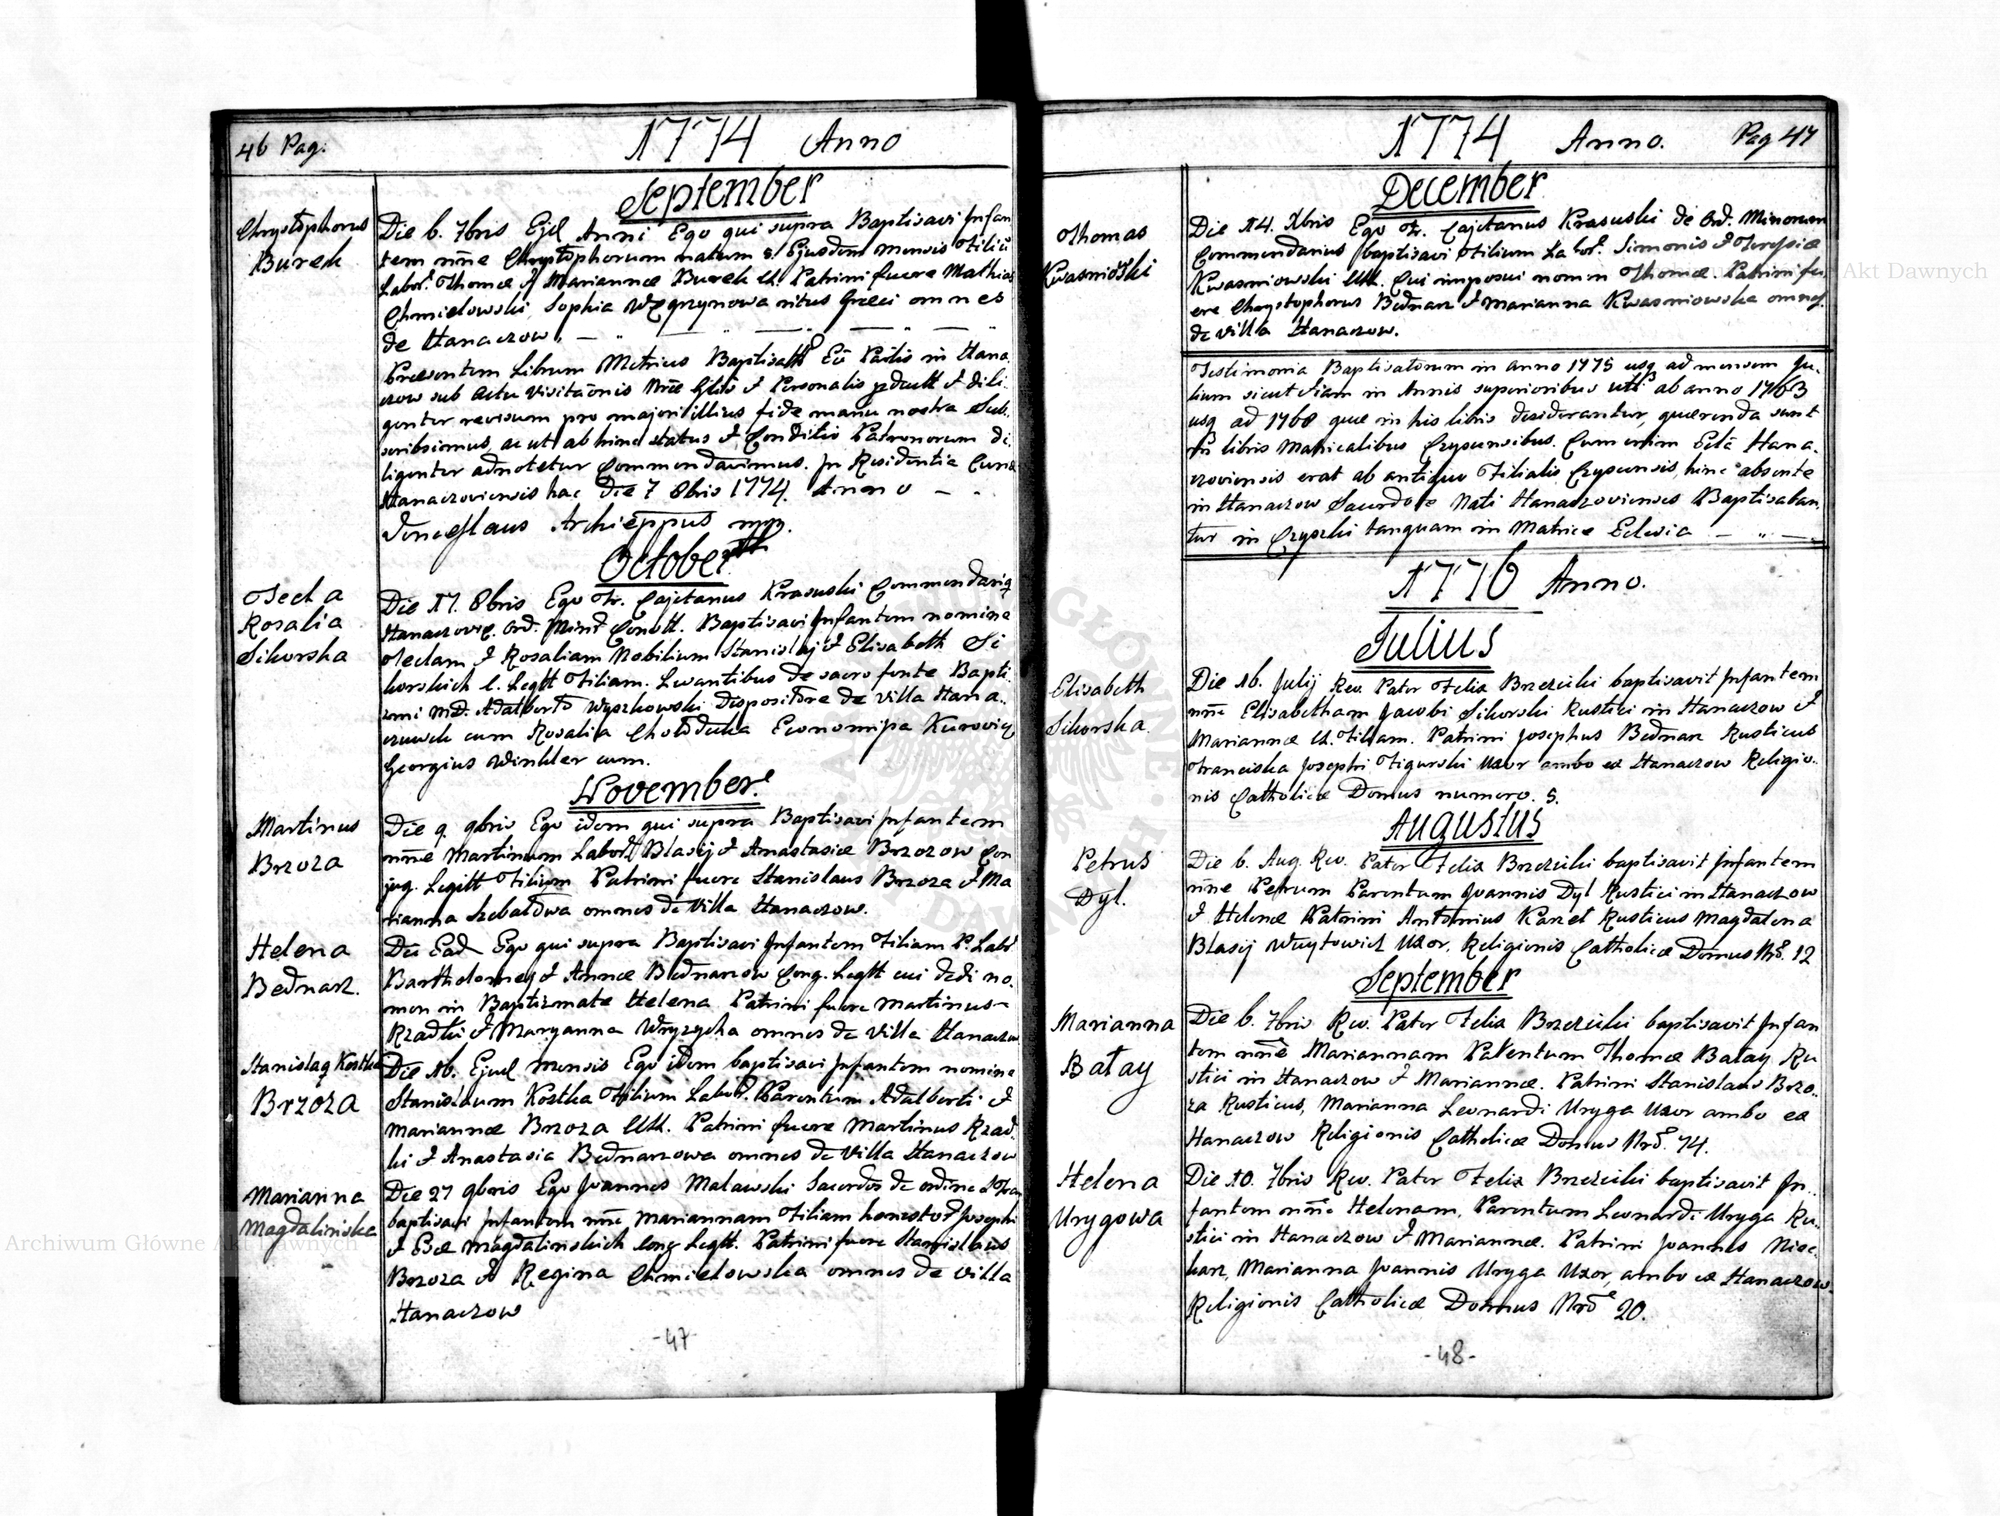 46 Pag. 1774 Anno
September
Chrystophorus
Burek
Die 6. 7bris Ejd Anni Ego qui supra Baptisavi Infan
tem nne Chrystophorum natum Ejusdem mensis Filiu
Labor. Thomæ & Mariannæ Burek Patrini fuere Mathias
Chmielowski, Sophia Węgrzynowa ritus Græci omnes
de Hanaczow
Præsentem Librum Metrices Baptisatt Eccl Paroc in Hana
czow sub Actu Visitaõnis nræ Glis & Personalis & dili
genter revisum pro majori illius fide manu nostra Sub
scribsimus, ac ut ab hinc status & Conditio Patronorum di
ligenter adnotetur Commendavimus. In Residentia Curiæ
Hanaczoviensis hac Die 7 8bris 1774. Anno
Venceslaus Archieppus mpp.
October
Tecla
Rosalia
Sikorska
Die 17. 8bris Ego Fr. Cajetanus Krasuski Commendariq
Hanaczovic. Ord. Min Convtt. Baptisavi Infantem nomine
Teclam & Rosaliam Nobilium Stanislaj & Elisabeth Si
korskich C. Legtt Filiam. Levantibus de sacro fonte Bapti
smi MD. Adalberto Wyszkowski Dispositore de Villa Hana
czowek cum Rosalia Chołducka Economissa Kurovicz
Georgius Winkler cum.
November
Martinus
Brzoza
Die 9. 9bris Ego idem qui supra Baptisavi Infantem
nne Martinum Labor Blasij & Anastasiæ Brzozow Con
jug. Legitt Filium Patrini fuere Stanislaus Brzoza & Ma
rianna Szbałdwa omnes de Villa Hanaczow.
Helena
Bednarz.
Die Ead Ego qui supra Baptisavi Infantem Filiam P. Labt
Bartholomej & Annæ Bednarzow Conjg. Legtt cui dedi no
men in Baptismate Helena Patrini fuere Martinus
Rzadki & Maryanna Wryzycha omnes de Villa Hanaczow
Stanislaq Kostka
Brzoza
Die 16. Ejusd mensis Ego idem baptisavi Infantem nomine
Stanislaum Kostka Filium Labor. Parentum Adalberti &
Mariannæ Brzoza CLtt. Patrini fuere Martinus Rzad
ki & Anastasia Bednarzowa omnes de Villa Hanaczow
Marianna
Magdalinska
Die 27 9bris Ego Joannes Malawski Sacerdos de ordine
baptisavi Infantem nne Mariannam Filiam honestor Josephi
& Evæ Magdalinskich Conjg Legtt. Patrini fuere Stanislaus
Brzoza & Regina Chmielowska omnes de Villa
Hanaczow
-47-
1774 Anno. Pag 47
December
Thomas
Kwasniowski
Die 14. Xbris Ego Fr. Cajetanus Krasuski de Ord. Minorum
Commendarius baptisavi Filium Labor. Simonis & Theresiæ
Kwasniowski CLtt. Cui imposui nomen Thomæ. Patrini fu
ere Chrystophorus Bednarz & Marianna Kwasniowska omnes
de Villa Hanaczow.
Testimonia Baptisatorum in Anno 1775 usq ad mensem Ju
lium sicut etiam in Annis superioribus utt ab anno 1763
usq ad 1768 quæ in his libris desiderantur, quærenda sunt
in libris Matricalibus Czyscensibus. Cum enim Eccla Hana
czoviensis erat ab antiquo Filialis Czyscensis, hinc absente
in Hanaczow Sacerdote Nati Hanaczovienses Baptisaban
tur in Czyszki tanquam in Matrice Eclesia
1776 Anno.
Julius
Elisabeth
Sikorska.
Die 16. Julij Rev. Pater Felix Brzezicki baptisavit Infantem
nne Elisabetham Jacobi Sikorski Rustici in Hanaczow &
Mariannæ Filiam. Patrini Josephus Bednarz Rusticus
Franciska Josephi Figurski Uxor ambo ex Hanaczow Religio
nis Catholicæ Domus numero. 5.
Augustus
Petrus
Dyl.
Die 6. Aug. Rev. Pater Felix Brzezicki baptisavit Infantem
nne Petrum Parentum Joannis Dyl Rustici in Hanaczow
& Helenæ Patrini Antonius Karzel Rusticus Magdalena
Blasij Woytowicz Uxor, Religionis Catholicæ Domus Nro. 12
September
Marianna
Batay
Die 6. 7bris Rev. Pater Felix Brzezicki baptisavit Infan
tem nne Mariannam Parentum Thomæ Batay Ru
stici in Hanaczow & Mariannæ. Patrini Stanislaus Brzo
za Rusticus, Marianna Leonardi Uryga Uxor ambo ex
Hanaczow Religionis Catholicæ Domus Nro. 14.
Helena
Urygowa
Die 10. 7bris Rev. Pater Felix Brzezicki baptisavit In
fantem nne Helenam, Parentum Leonardi Uryga Ru
stici in Hanaczow & Mariannæ. Patrini Joannes Niec
karz, Marianna Joannis Uryga Uxor, ambo ex Hanaczow
Religionis Catholicæ Domus Nro 20.
-48-
Archiwum Główne Akt Dawnych
Akt Dawnych